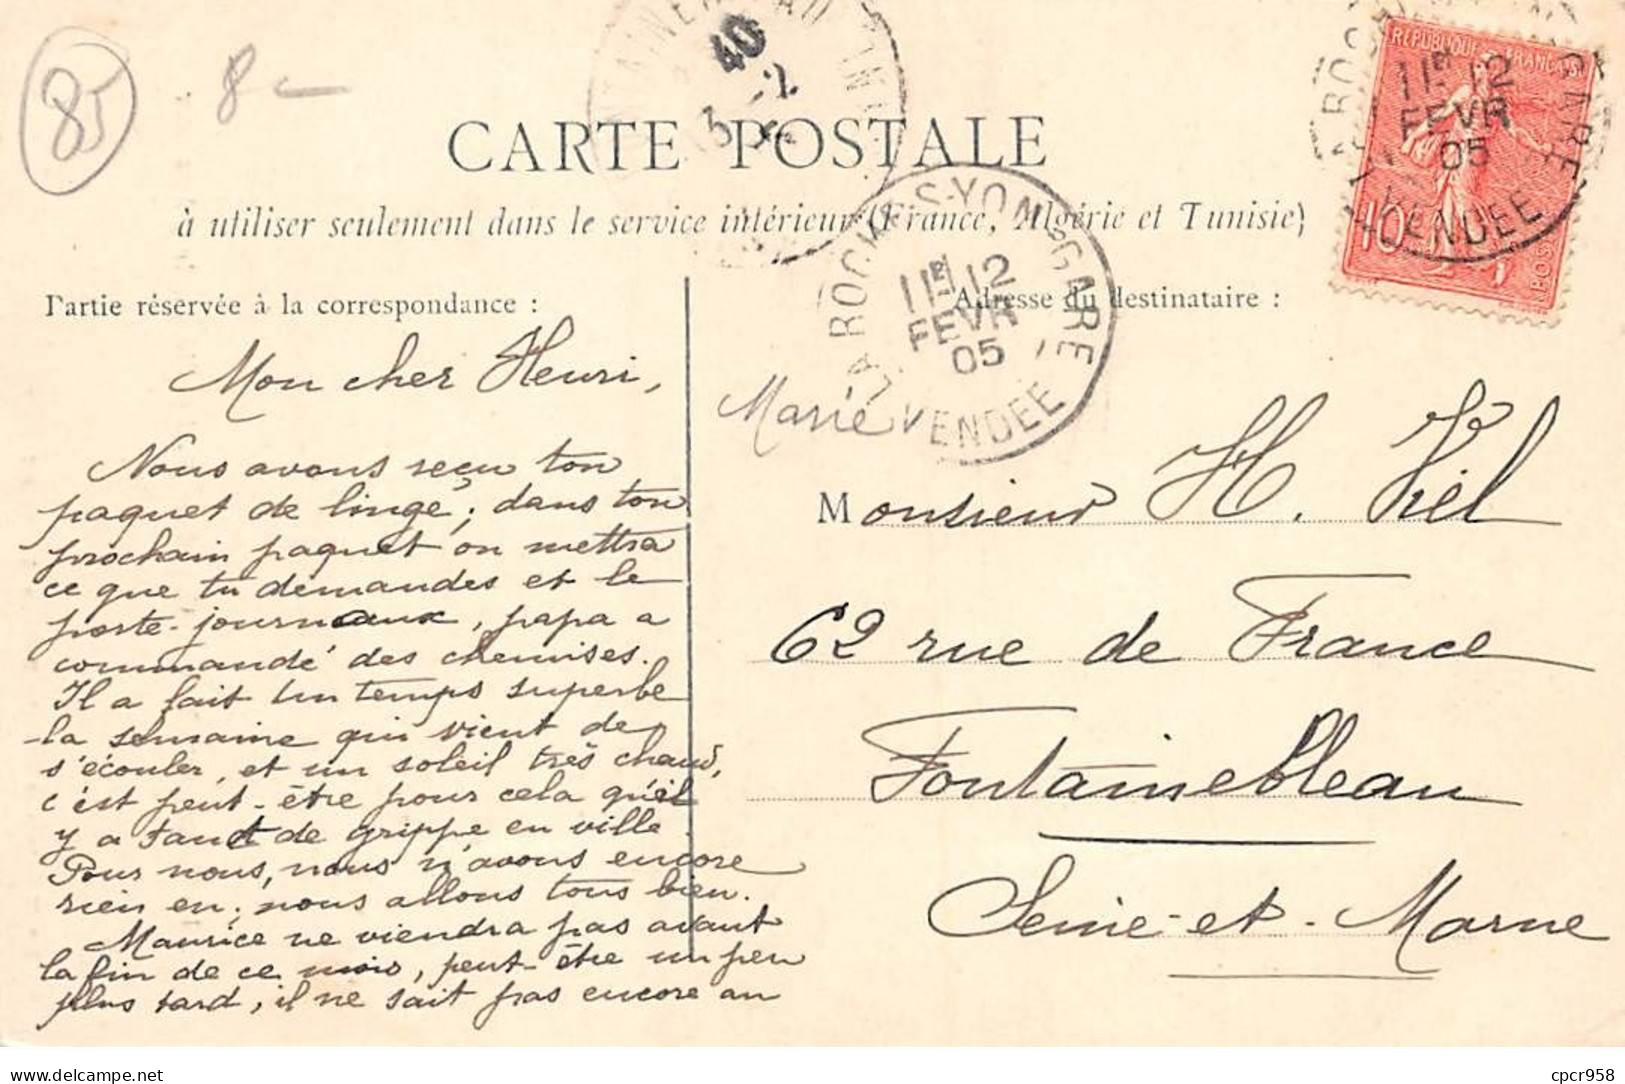 85
8
CARTE POSTALE
à utiliser seulement dans le service intérieur (France, Algérie et Tunisie)
REPUBLIQUE FRANÇAISE
10
POSTES
LA ROCHE-S-YON-GARE
11E 12
FEVR
05
VENDEE
LA ROCHE-S-YON-GARE
11E 12
FEVR
05
VENDEE
Partie réservée à la correspondance :
Mon cher Henri,
Nous avons reçu ton
paquet de linge ; dans ton
prochain paquet on mettra
ce que tu demandes et le
porte-journaux, papa a
commandé des chemises.
Il a fait un temps superbe
la semaine qui vient de
s'écouler, et un soleil très chaud,
c'est peut-être pour cela qu'il
y a tant de grippe en ville.
Pour nous, nous n'avons encore
rien eu ; nous allons tous bien.
Maurice ne viendra pas avant
la fin de ce mois, peut-être un peu
plus tard, il ne sait pas encore au
Adresse du destinataire :
Marie
Monsieur H. Viel
62 rue de France
Fontainebleau
Seine-et-Marne
cpcr958